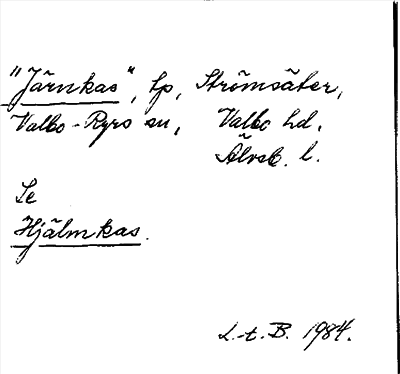 "Järnkas", tp, Strömsäter,
Valbo-Ryrs sn, Valbo hd.
Älvsb. l.
Se
Hjälmkas.
L.-t. B. 1984.